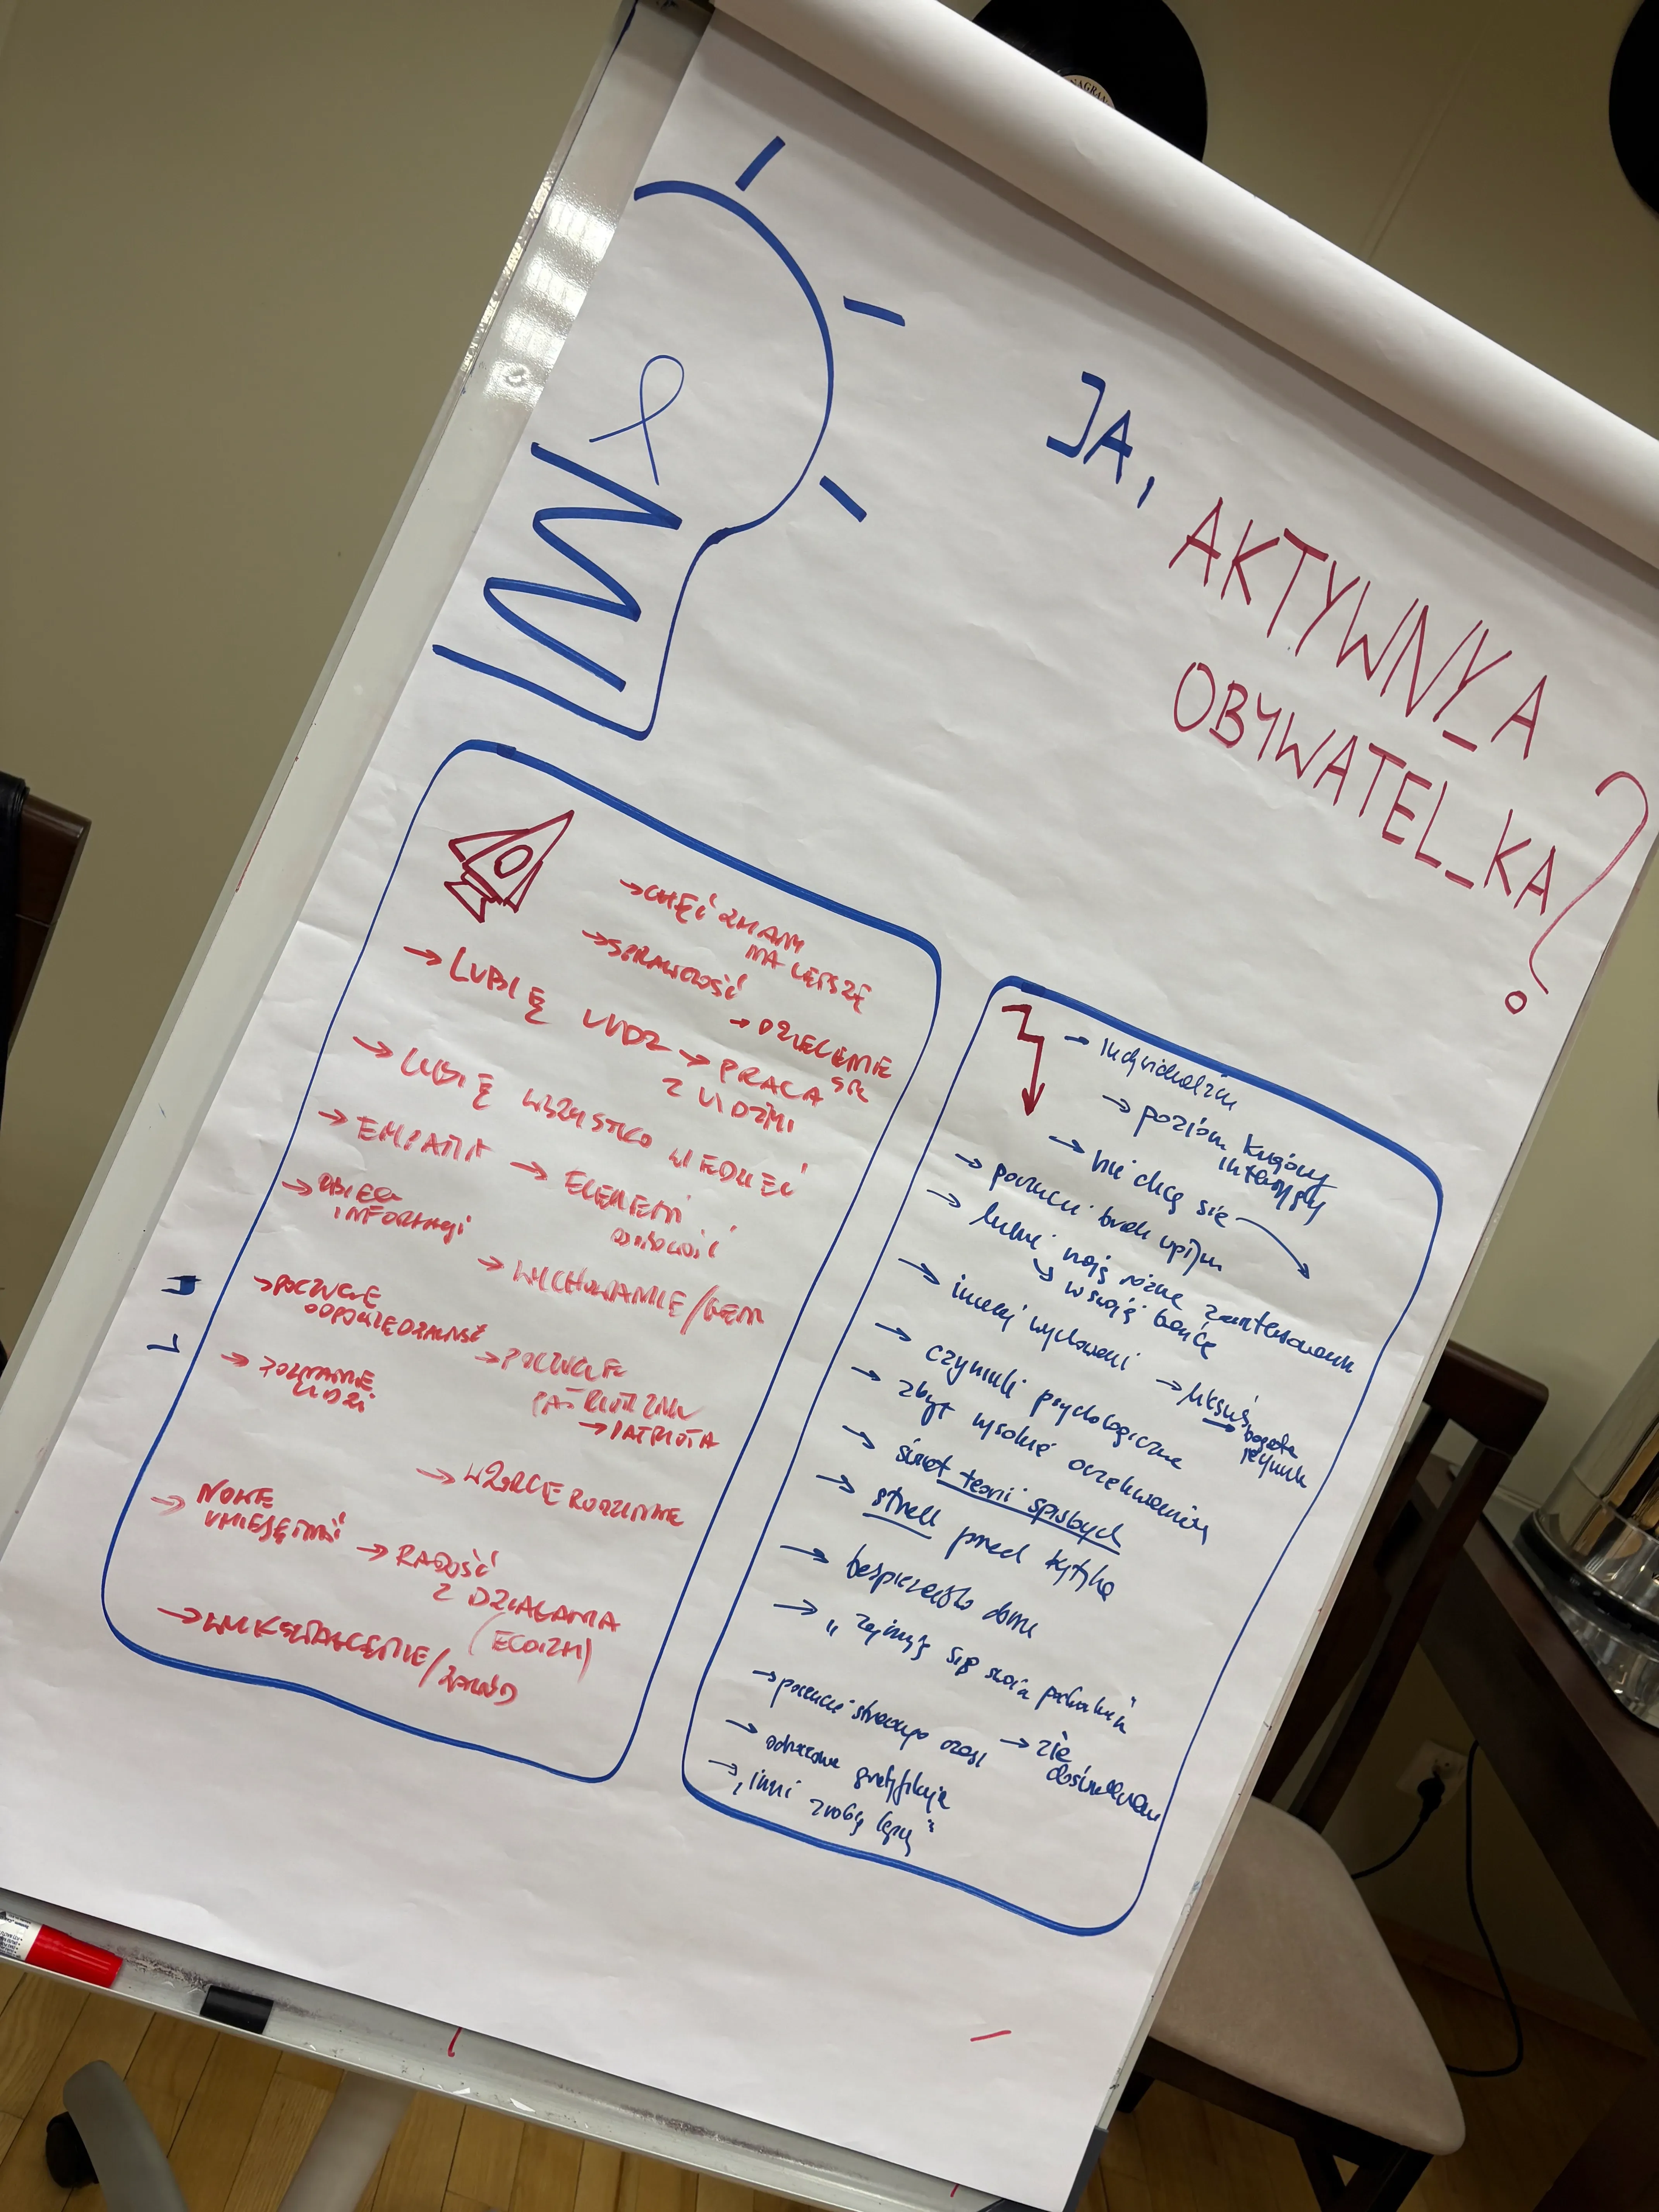 NAGRAN
JA,
AKTYWNY_A
OBYWATEL_KA?
→ CHĘĆ ZMIANY
NA LEPSZE
→ SPRAWCZOŚĆ
→ LUBIĘ LUDZI
→ DZIELENIE
SIĘ
→ PRACA
Z LUDŹMI
→ LUBIĘ WSZYSTKO WIEDZIEĆ
→ EMPATIA
→ ELEMENT
→ OBIEG
INFORMACJI
→ WYCHOWANIE/GEN
→ POCZUCIE
ODPOWIEDZIALNOŚĆ
→ POCZUCIE
→ PATRIOTA
→ POZNANIE
LUDZI
→ WZORCE RODZINNE
→ NOWE
UMIEJĘTNOŚĆ
→ RADOŚĆ
Z DZIAŁANIA
(EGOIZM)
→ WYKSZTAŁCENIE/ZAWÓD
→ indywidualizm
→ poziom
→ nie chcę się
→ poczucie brak wpływu
→ ludzie mają różne zainteresowania
→ w swojej bańce
→ inaczej wychowani
→ luksus
bogate
→ czynniki psychologiczne
→ zbyt wysokie oczekiwania
→ świat teorii spiskowych
→ strach przed krytyką
→ bezpieczeństwo domu
→ „zajmuję się swoim
→ poczucie straconego czasu
→ złe
doświadczenia
→ odroczona gratyfikacja
→ „inni zrobią lepiej”